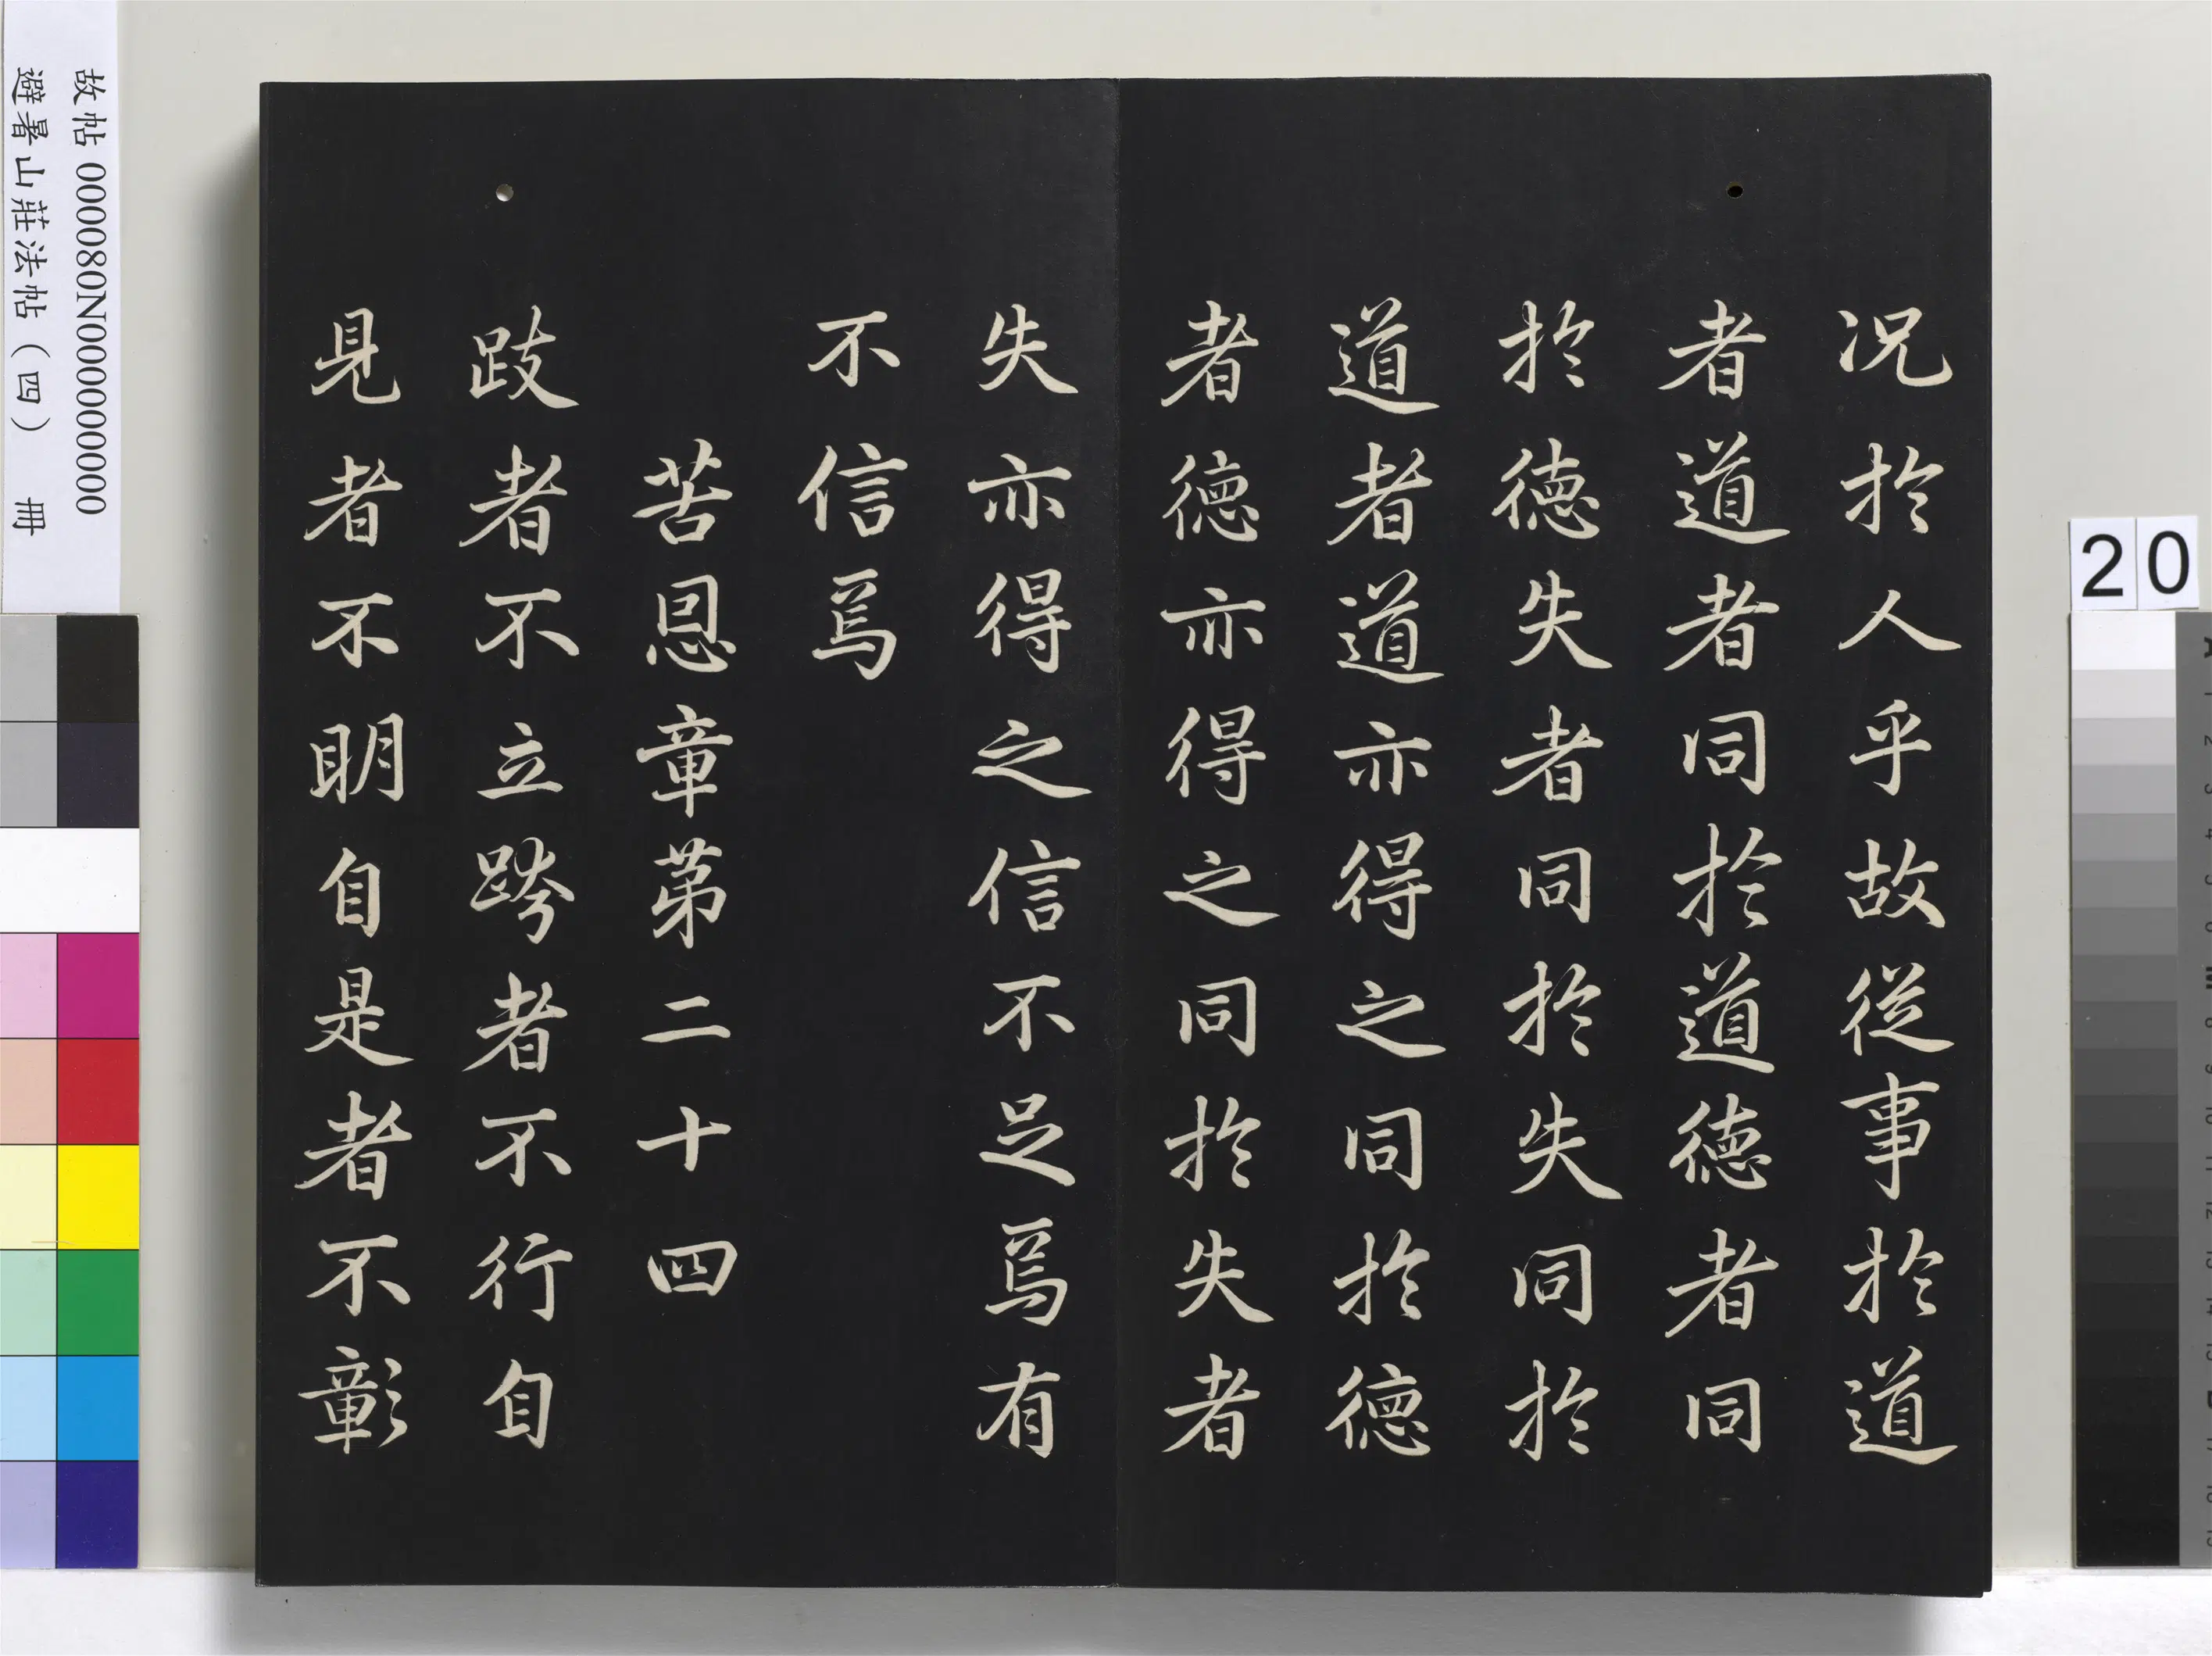 况於人乎故従事於道
者道者同於道德者同
於德失者同於失同於
道者道亦得之同於德
者德亦得之同於失者
失亦得之信不足焉有
不信焉
苦恩章苐二十四
跂者不立跨者不行自
見者不明自是者不彰
故帖 000080N000000000
避暑山莊法帖（四） 冊
20